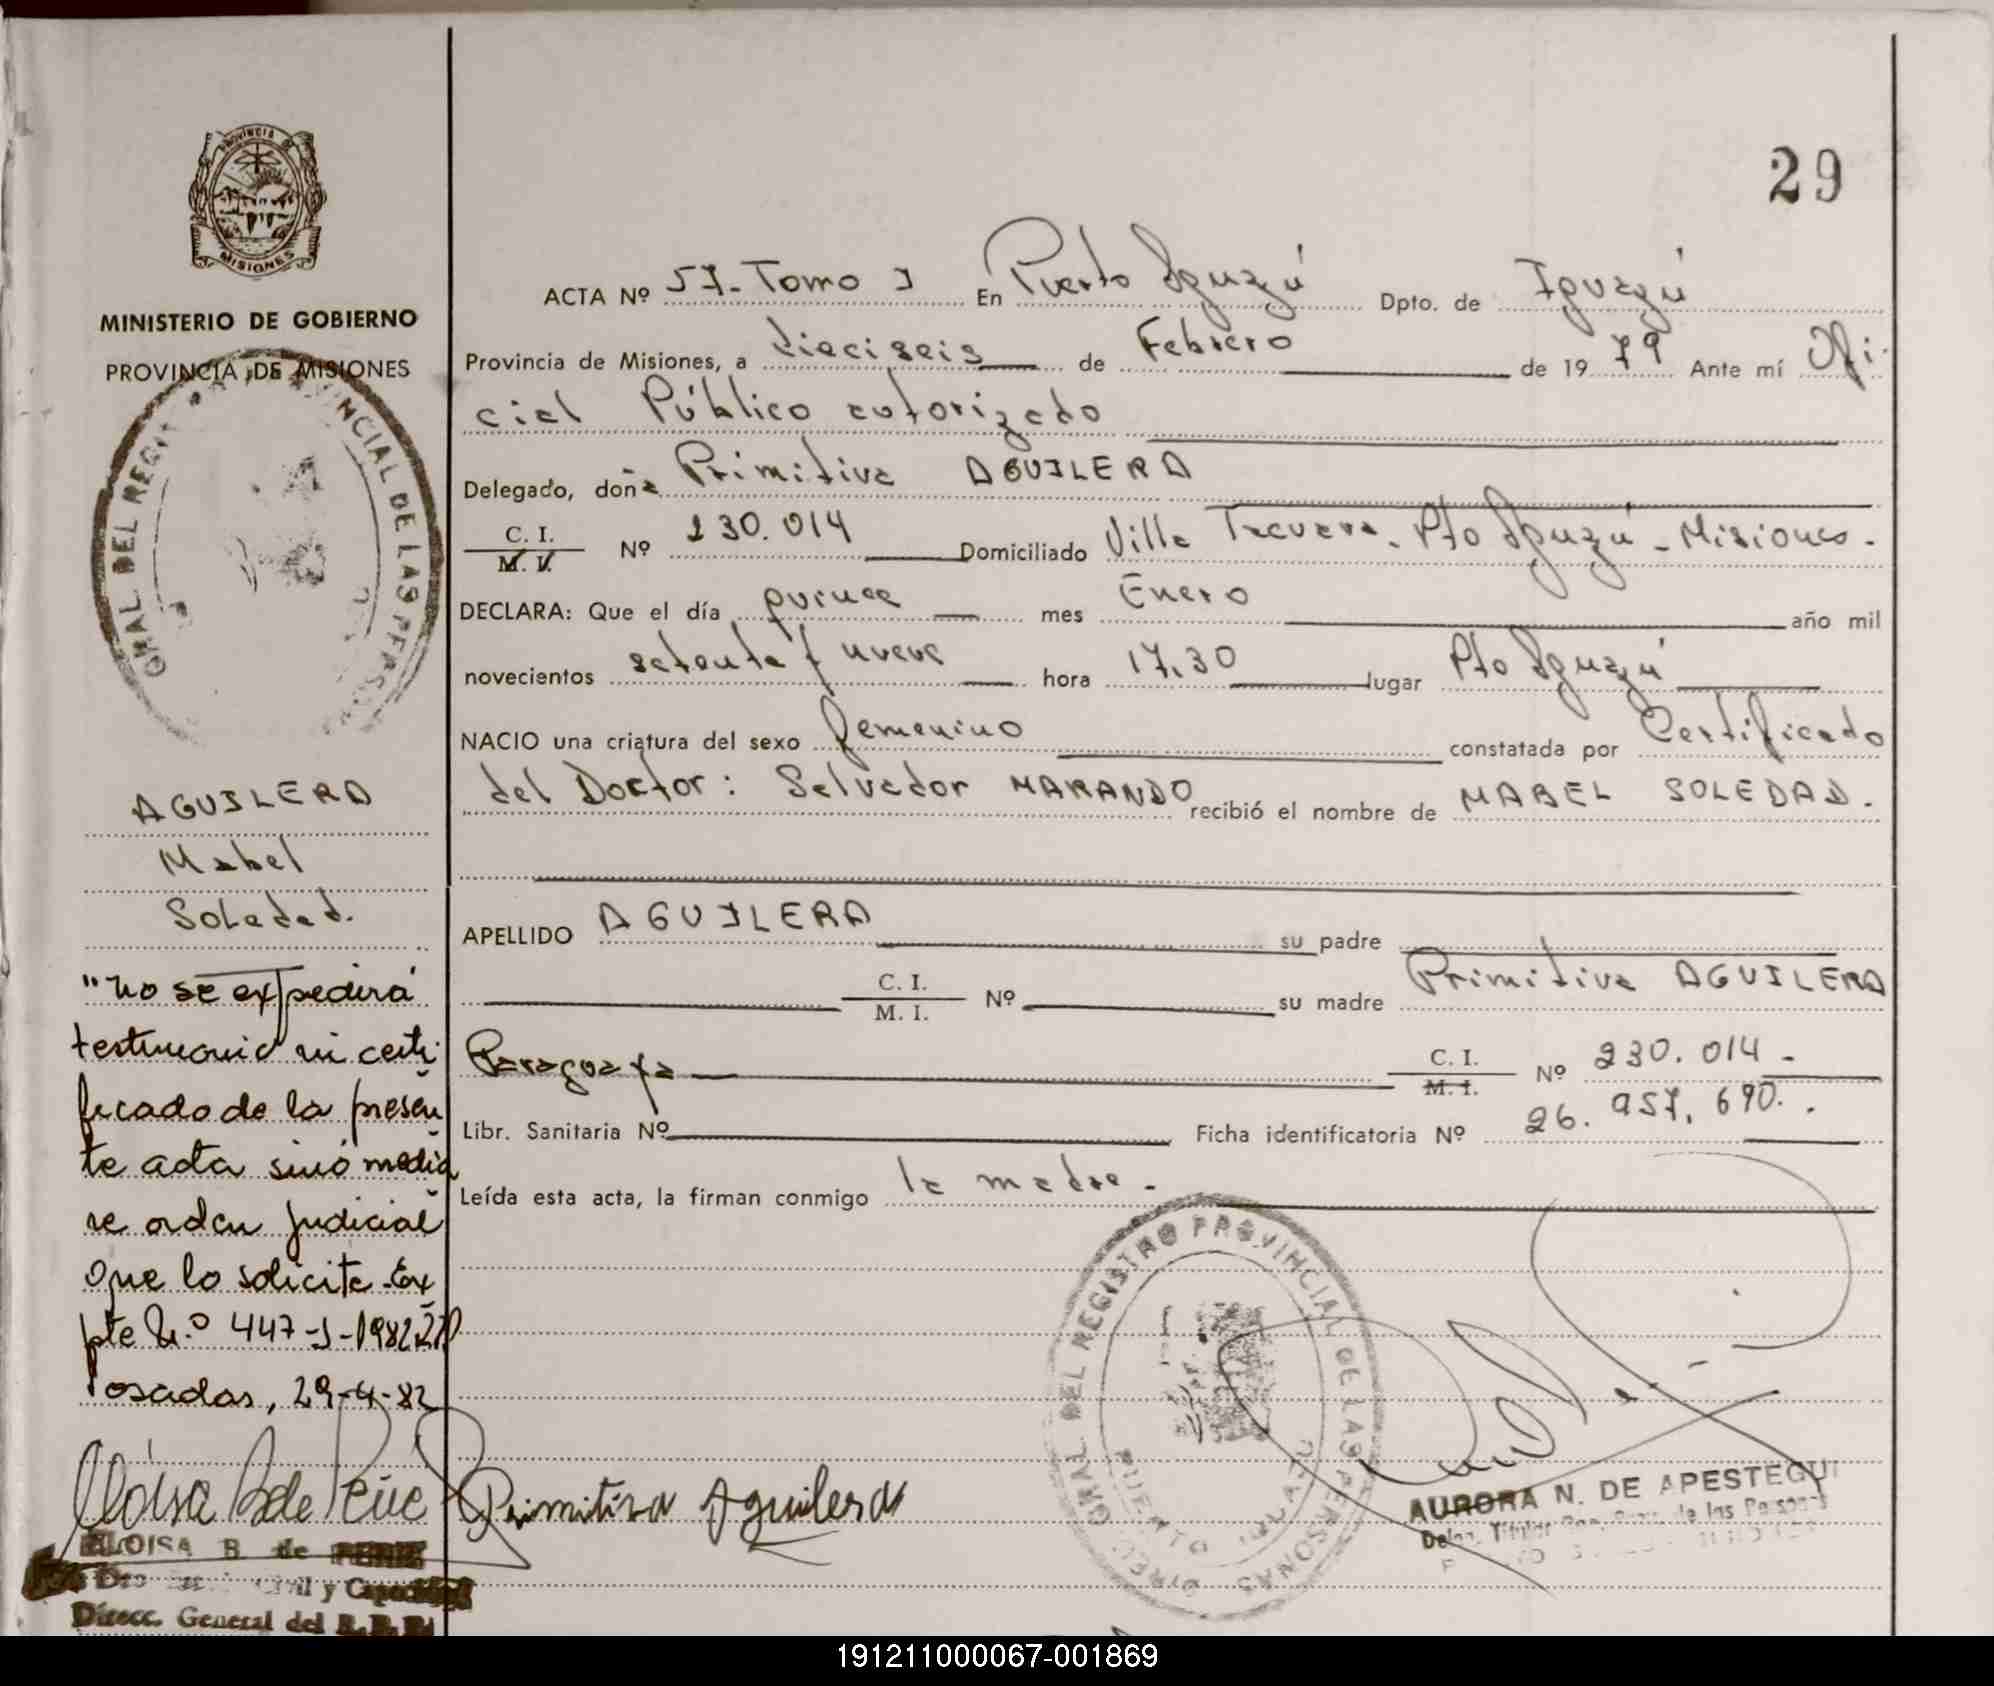 29
PROVINCIA DE
MISIONES
MINISTERIO DE GOBIERNO
PROVINCIA DE MISIONES
GRAL DEL REGI PROVINCIAL DE LAS PERSO
AGUILERA
Mabel
Soledad.
"No se expedirá
testimonio ni certi
ficado de la presen
te acta sinó media
re orden judicial
que lo solicite - Ex
pte N.º 447-J-1982
Posadas, 29-4-82
ELOISA B. de
Civil y Capacidad
Direcc. General del R.P.P.
ACTA Nº 57- Tomo I En Puerto Iguazú Dpto. de Iguazú
Provincia de Misiones, a dieciseis de Febrero de 1979 Ante mí Ofi
cial Público autorizado
Delegado, doña Primitiva AGUILERA
C. I. M. I. Nº 230.014 Domiciliado Villa Tacuara. Pto Iguazú - Misiones.
DECLARA: Que el día quince mes Enero año mil
novecientos setenta y nueve hora 17,30 lugar Pto Iguazú
NACIO una criatura del sexo femenino constatada por Certificado
del Doctor: Salvador MARANDO recibió el nombre de MABEL SOLEDAD.
APELLIDO AGUILERA su padre
C. I. M. I. Nº su madre Primitiva AGUILERA
Paraguaya C. I. M. I. Nº 230.014 -
Libr. Sanitaria Nº Ficha identificatoria Nº 26.957.690.
Leída esta acta, la firman conmigo la madre.
DIREC. GRAL DEL REGISTRO PROVINCIAL DE LAS PERSONAS
PUERTO IGUAZU
Primitiva Aguilera
AURORA N. DE APESTEGUI
Deleg. Titular Reg. Prov. de las Personas
191211000067-001869